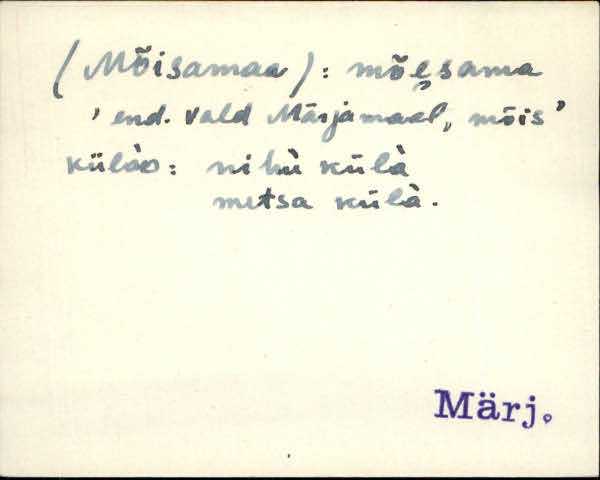 (Mõisamaa): mõe̯sama
' end. vald Märjamaal, mõis '
külàd: nihù külà
metsa külà.
Märj.